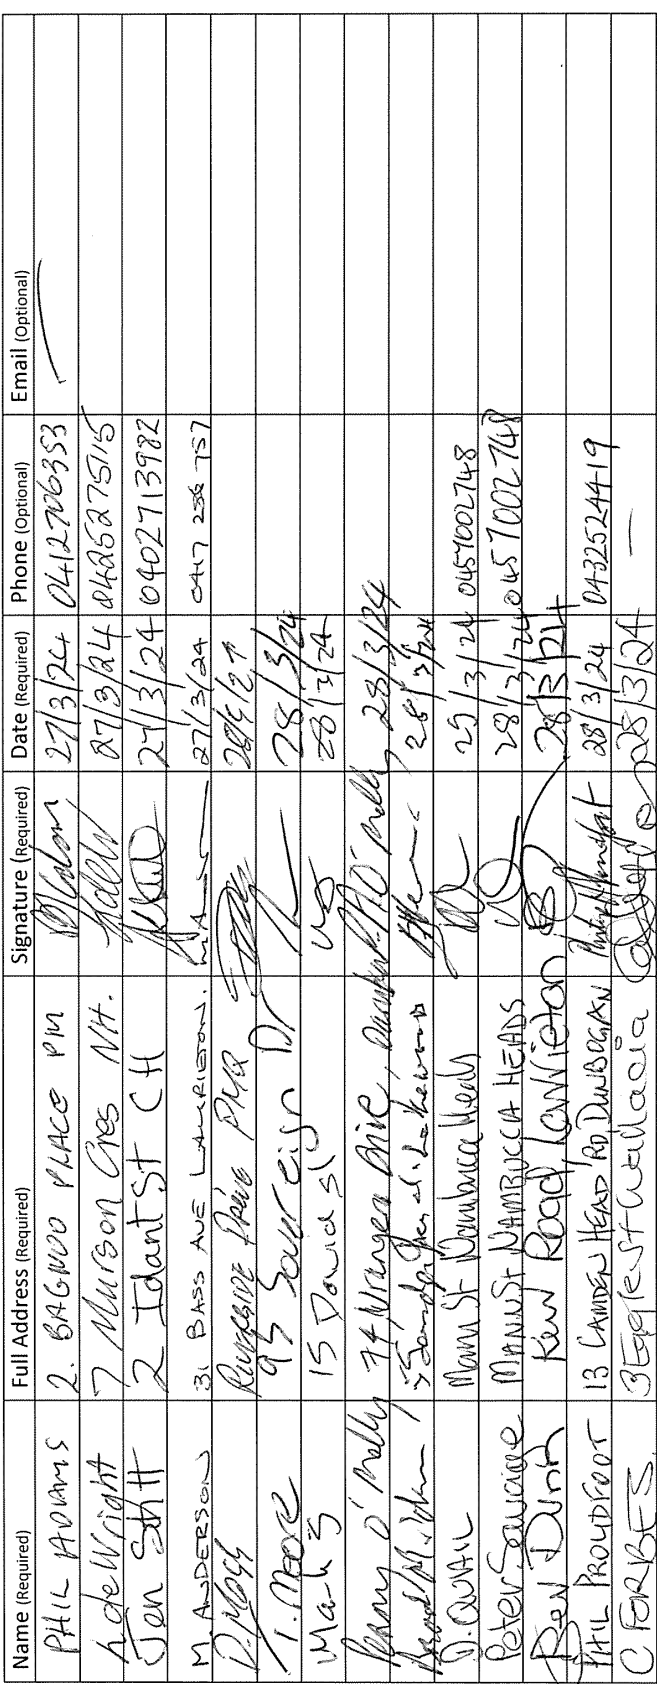 Name (Required) Full Address (Required) Signature (Required) Date (Required) Phone (Optional) Email (Optional)
PHIL ADAMS 2. BAGNOO PLACE PM 27/3/24 0412706353
L deWright 7 Murson Cres NH. 27/3/24 0425275115
Jen 2 Idant St CH 27/3/24 0402713982
M. ANDERSON 31 BASS AVE LAURIETON. 27/3/24 0417 236 757
D. Riverside Drive PMQ
T. Moore 95 Sovereign Dr 28/3/24
Mark S 15 David St 28/3/24
Penny O'Mally 74 Drive, 28/3/24
28/3/24
D. QUAIL Mann St Nambucca Heads 25/3/24 0457002748
Peter MANN St NAMBUCCA HEADS 28/3/24 0457002748
Bev Dunn Kew Road, Laurieton 28/3/24
PHIL PROUDFOOT 13 CAMDEN HEAD RD DUNBOGAN 28/3/24 0432524419
C FORBES 28/3/24 —